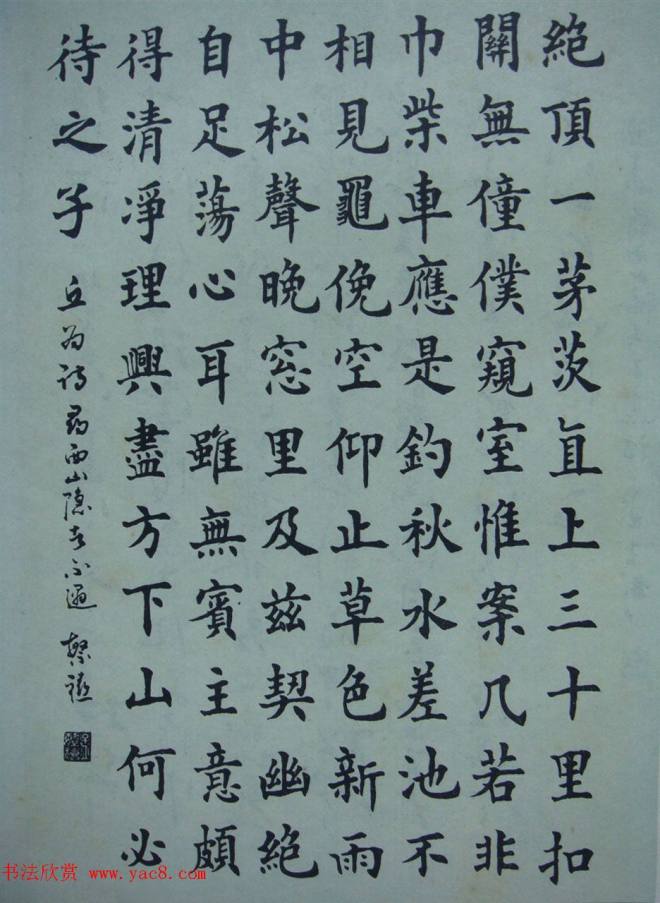 絶頂一茅茨直上三十里扣
關無僮僕窺室惟案几若非
巾柴車應是釣秋水差池不
相見黽俛空仰止草色新雨
中松聲晚窓里及兹契幽絶
自足蕩心耳雖無賓主意頗
得清淨理興盡方下山何必
待之子
丘为诗尋西山隱者不遇
书法欣赏 www.yac8.com